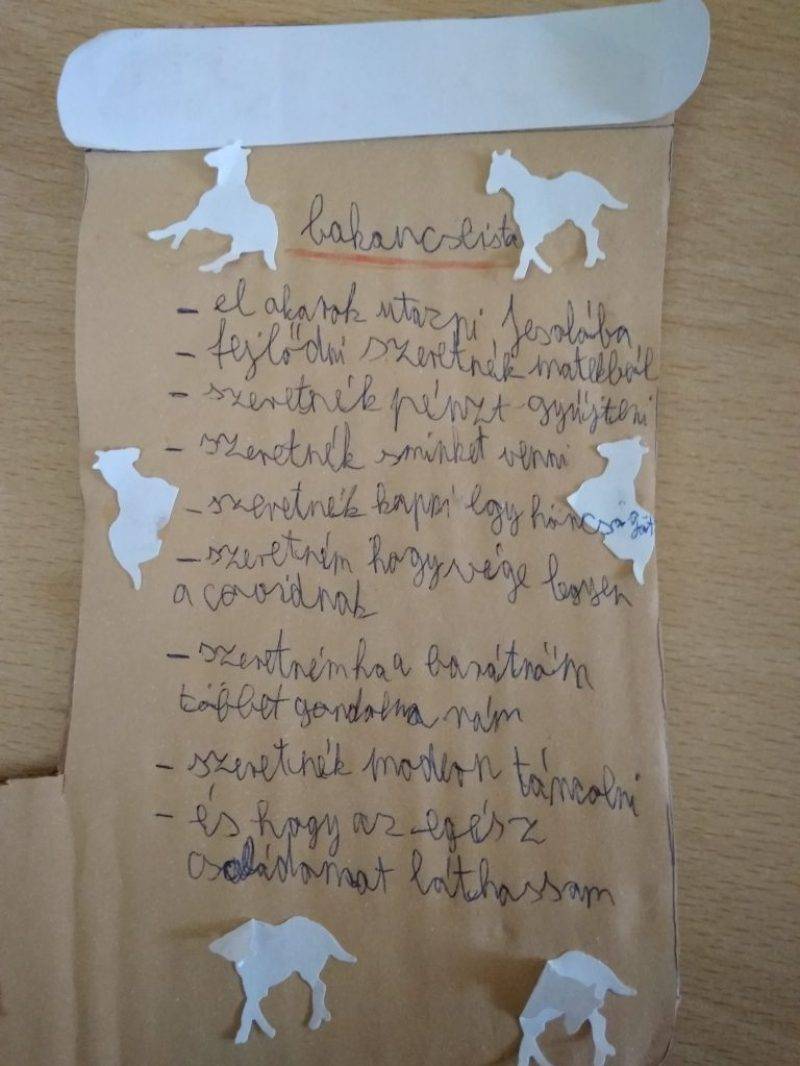 bakancslista
- el akarok utazni Jesolóba
- fejlődni szeretnék matekból
- szeretnék pénzt gyűjteni
- szeretnék sminket venni
- szeretnék kapni egy háncsigát
- szeretném hogy vége legyen
a covidnak
- szeretném ha a barátnőim
többet gondolna rám
- szeretnék modern táncolni
- és hogy az egész
családomat láthassam